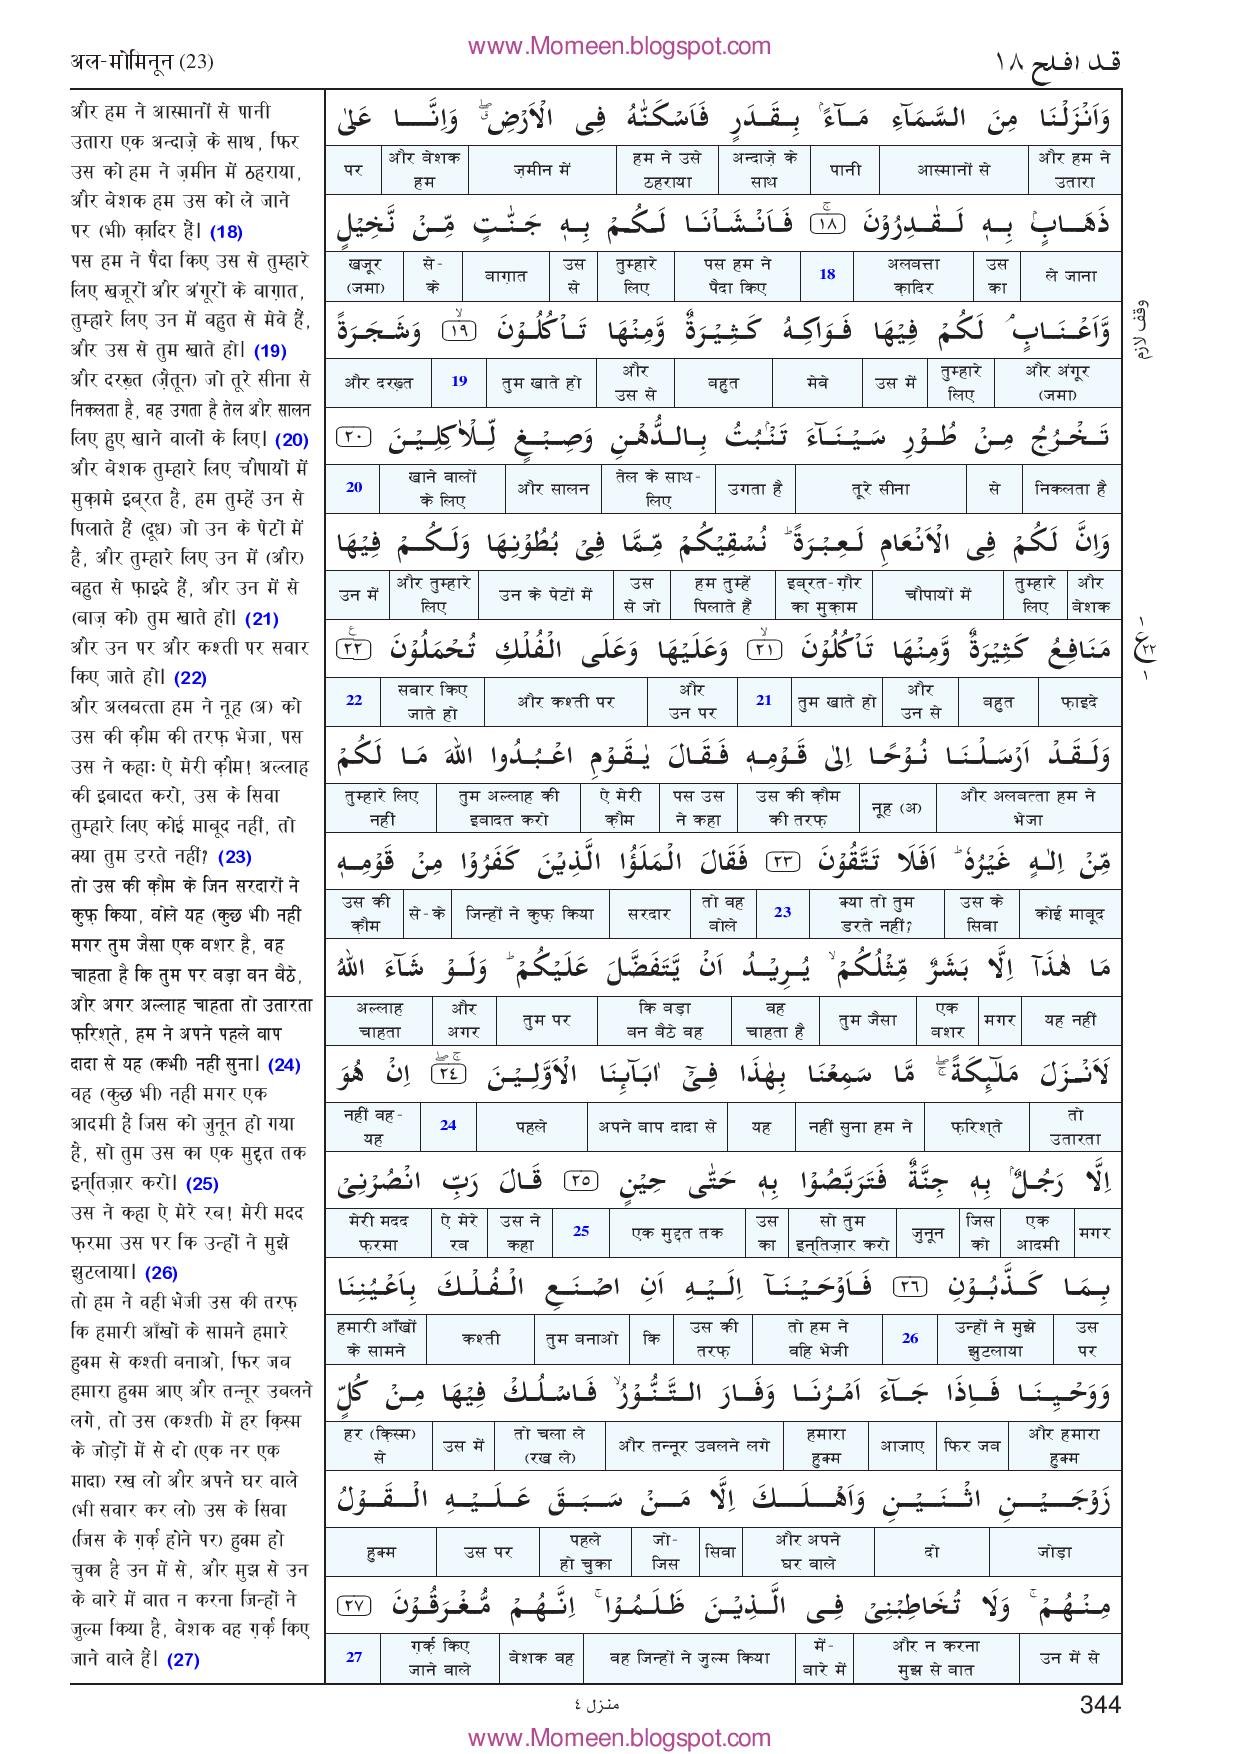 www.Momeen.blogspot.com
अल-मोमिनून (23)
قد افلح ١٨
और हम ने आस्मानों से पानी
उतारा एक अन्दाज़े के साथ, फिर
उस को हम ने ज़मीन में ठहराया,
और बेशक हम उस को ले जाने
पर (भी) क़ादिर हैं। (18)
पस हम ने पैदा किए उस से तुम्हारे
लिए खजूरों और अंगूरों के बाग़ात,
तुम्हारे लिए उन में बहुत से मेवे हैं,
और उस से तुम खाते हो। (19)
और दरख़्त (ज़ैतून) जो तूरे सीना से
निकलता है, वह उगता है तेल और सालन
लिए हुए खाने वालों के लिए। (20)
और बेशक तुम्हारे लिए चौपायों में
मुक़ामे इब्रत है, हम तुम्हें उन से
पिलाते हैं (दूध) जो उन के पेटों में
है, और तुम्हारे लिए उन में (और)
बहुत से फ़ाइदे हैं, और उन में से
(बाज़ को) तुम खाते हो। (21)
और उन पर और कश्ती पर सवार
किए जाते हो। (22)
और अलबत्ता हम ने नूह (अ) को
उस की क़ौम की तरफ़ भेजा, पस
उस ने कहाः ऐ मेरी क़ौम! अल्लाह
की इबादत करो, उस के सिवा
तुम्हारे लिए कोई माबूद नहीं, तो
क्या तुम डरते नहीं? (23)
तो उस की क़ौम के जिन सरदारों ने
कुफ़्र किया, बोले यह (कुछ भी) नहीं
मगर तुम जैसा एक बशर है, वह
चाहता है कि तुम पर बड़ा बन बैठे,
और अगर अल्लाह चाहता तो उतारता
फ़रिश्ते, हम ने अपने पहले बाप
दादा से यह (कभी) नहीं सुना। (24)
वह (कुछ भी) नहीं मगर एक
आदमी है जिस को जुनून हो गया
है, सो तुम उस का एक मुद्दत तक
इन्तिज़ार करो। (25)
उस ने कहा ऐ मेरे रब! मेरी मदद
फ़रमा उस पर कि उन्हों ने मुझे
झुटलाया। (26)
तो हम ने वही भेजी उस की तरफ़
कि हमारी आँखों के सामने हमारे
हुक्म से कश्ती बनाओ, फिर जब
हमारा हुक्म आए और तन्नूर उबलने
लगे, तो उस (कश्ती) में हर क़िस्म
के जोड़ों में से दो (एक नर एक
मादा) रख लो और अपने घर वाले
(भी सवार कर लो) उस के सिवा
(जिस के ग़र्क़ होने पर) हुक्म हो
चुका है उन में से, और मुझ से उन
के बारे में बात न करना जिन्हों ने
जुल्म किया है, बेशक वह ग़र्क़ किए
जाने वाले हैं। (27)
وَاَنْزَلْنَا مِنَ السَّمَآءِ مَآءًۢ بِقَدَرٍ فَاَسْكَنّٰهُ فِى الْاَرْضِ ۖۗ وَاِنَّا عَلٰى
और हम ने उतारा | आस्मानों से | पानी | अन्दाज़े के साथ | हम ने उसे ठहराया | ज़मीन में | और बेशक हम | पर
ذَهَابٍۢ بِهٖ لَقٰدِرُوْنَ ۚ ١٨ فَاَنْشَاْنَا لَكُمْ بِهٖ جَنّٰتٍ مِّنْ نَّخِيْلٍ
ले जाना | उस का | अलबत्ता क़ादिर | 18 | पस हम ने पैदा किए | तुम्हारे लिए | उस से | बाग़ात | से-के | खजूर (जमा)
وَّاَعْنَابٍ ۘ لَكُمْ فِيْهَا فَوَاكِهُ كَثِيْرَةٌ وَّمِنْهَا تَاْكُلُوْنَ ۙ ١٩ وَشَجَرَةً
और अंगूर (जमा) | तुम्हारे लिए | उस में | मेवे | बहुत | और उस से | तुम खाते हो | 19 | और दरख़्त
تَخْرُجُ مِنْ طُوْرِ سَيْنَآءَ تَنْۢبُتُ بِالدُّهْنِ وَصِبْغٍ لِّلْاٰكِلِيْنَ ٢٠
निकलता है | से | तूरे सीना | उगता है | तेल के साथ-लिए | और सालन | खाने वालों के लिए | 20
وَاِنَّ لَكُمْ فِى الْاَنْعَامِ لَعِبْرَةً ؕ نُسْقِيْكُمْ مِّمَّا فِىْ بُطُوْنِهَا وَلَكُمْ فِيْهَا
और बेशक | तुम्हारे लिए | चौपायों में | इब्रत-ग़ौर का मुक़ाम | हम तुम्हें पिलाते हैं | उस से जो | उन के पेटों में | और तुम्हारे लिए | उन में
مَنَافِعُ كَثِيْرَةٌ وَّمِنْهَا تَاْكُلُوْنَ ۙ ٢١ وَعَلَيْهَا وَعَلَى الْفُلْكِ تُحْمَلُوْنَ ٢٢
फ़ाइदे | बहुत | और उन से | तुम खाते हो | 21 | और उन पर | और कश्ती पर | सवार किए जाते हो | 22
وَلَقَدْ اَرْسَلْنَا نُوْحًا اِلٰى قَوْمِهٖ فَقَالَ يٰقَوْمِ اعْبُدُوا اللّٰهَ مَا لَكُمْ
और अलबत्ता हम ने भेजा | नूह (अ) | उस की क़ौम की तरफ़ | पस उस ने कहा | ऐ मेरी क़ौम | तुम अल्लाह की इबादत करो | तुम्हारे लिए नहीं
مِّنْ اِلٰهٍ غَيْرُهٗ ؕ اَفَلَا تَتَّقُوْنَ ٢٣ فَقَالَ الْمَلَؤُا الَّذِيْنَ كَفَرُوْا مِنْ قَوْمِهٖ
कोई माबूद | उस के सिवा | क्या तो तुम डरते नहीं? | 23 | तो वह बोले | सरदार | जिन्हों ने कुफ़्र किया | से-के | उस की क़ौम
مَا هٰذَآ اِلَّا بَشَرٌ مِّثْلُكُمْ ۙ يُرِيْدُ اَنْ يَّتَفَضَّلَ عَلَيْكُمْ ؕ وَلَوْ شَآءَ اللّٰهُ
यह नहीं | मगर | एक बशर | तुम जैसा | वह चाहता है | कि बड़ा बन बैठे वह | तुम पर | और अगर | अल्लाह चाहता
لَاَنْزَلَ مَلٰٓئِكَةً ۖۚ مَّا سَمِعْنَا بِهٰذَا فِىْٓ اٰبَآئِنَا الْاَوَّلِيْنَ ۚۖ ٢٤ اِنْ هُوَ
तो उतारता | फ़रिश्ते | नहीं सुना हम ने | यह | अपने बाप दादा से | पहले | 24 | नहीं वह-यह
اِلَّا رَجُلٌۢ بِهٖ جِنَّةٌ فَتَرَبَّصُوْا بِهٖ حَتّٰى حِيْنٍ ٢٥ قَالَ رَبِّ انْصُرْنِىْ
मगर | एक आदमी | जिस को | जुनून | सो तुम इन्तिज़ार करो | उस का | एक मुद्दत तक | 25 | उस ने कहा | ऐ मेरे रब | मेरी मदद फ़रमा
بِمَا كَذَّبُوْنِ ٢٦ فَاَوْحَيْنَآ اِلَيْهِ اَنِ اصْنَعِ الْفُلْكَ بِاَعْيُنِنَا
उस पर | उन्हों ने मुझे झुटलाया | 26 | तो हम ने वहि भेजी | उस की तरफ़ | कि | तुम बनाओ | कश्ती | हमारी आँखों के सामने
وَوَحْيِنَا فَاِذَا جَآءَ اَمْرُنَا وَفَارَ التَّنُّوْرُ ۙ فَاسْلُكْ فِيْهَا مِنْ كُلٍّ
और हमारा हुक्म | फिर जब | आजाए | हमारा हुक्म | और तन्नूर उबलने लगे | तो चला ले (रख ले) | उस में | हर (क़िस्म) से
زَوْجَيْنِ اثْنَيْنِ وَاَهْلَكَ اِلَّا مَنْ سَبَقَ عَلَيْهِ الْقَوْلُ
जोड़ा | दो | और अपने घर वाले | सिवा | जो-जिस | पहले हो चुका | उस पर | हुक्म
مِنْهُمْ ۚ وَلَا تُخَاطِبْنِىْ فِى الَّذِيْنَ ظَلَمُوْا ۚ اِنَّهُمْ مُّغْرَقُوْنَ ٢٧
उन में से | और न करना मुझ से बात | में-बारे में | वह जिन्हों ने जुल्म किया | बेशक वह | ग़र्क़ किए जाने वाले | 27
وقف لازم
ع
١
٢٢
١
منزل ٤
344
www.Momeen.blogspot.com